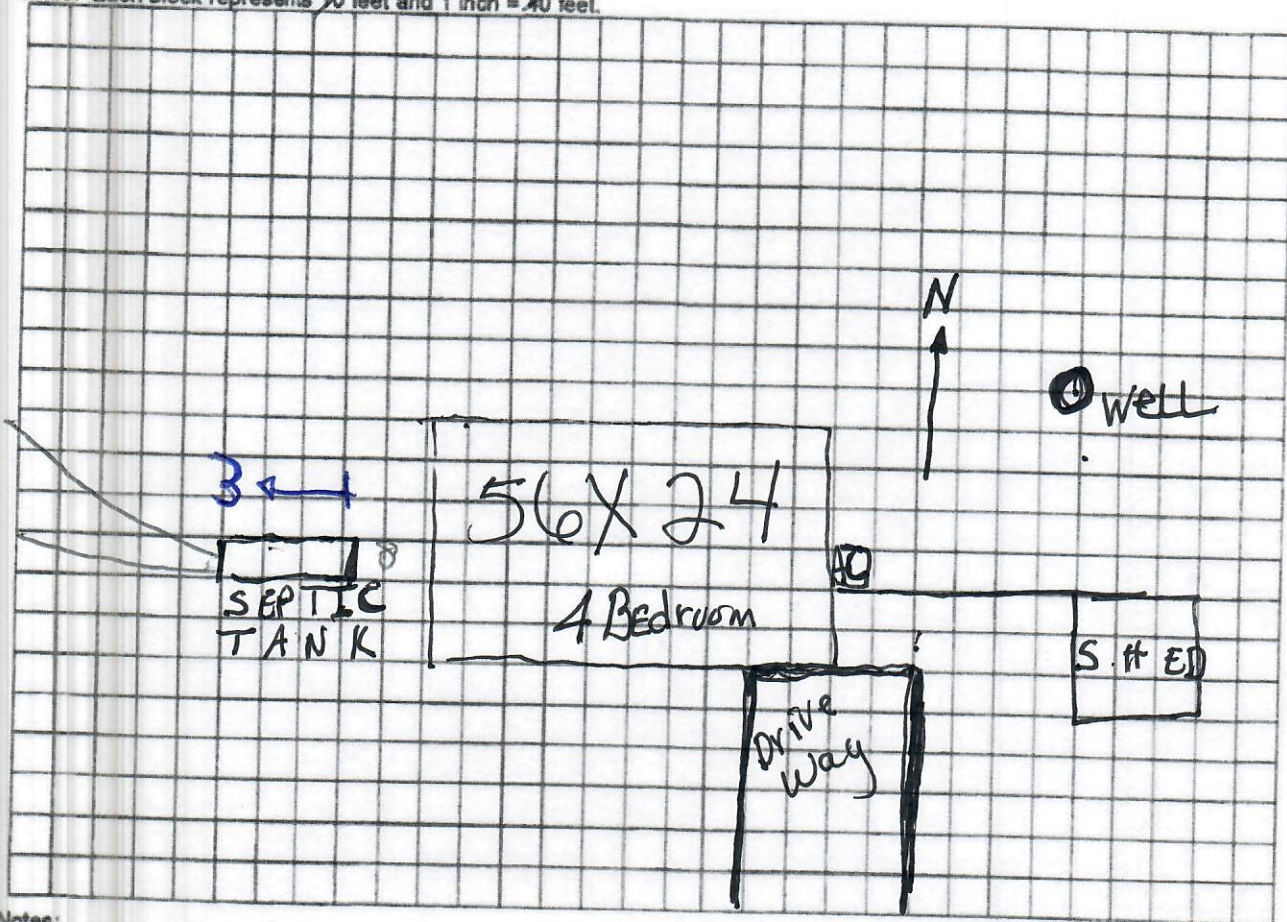 Each Block represents 10 feet and 1 inch = 40 feet.
N
WELL
3
56 X 24
8
AC
SEPTIC
TANK
4 Bedroom
SHED
Drive
Way
Notes: